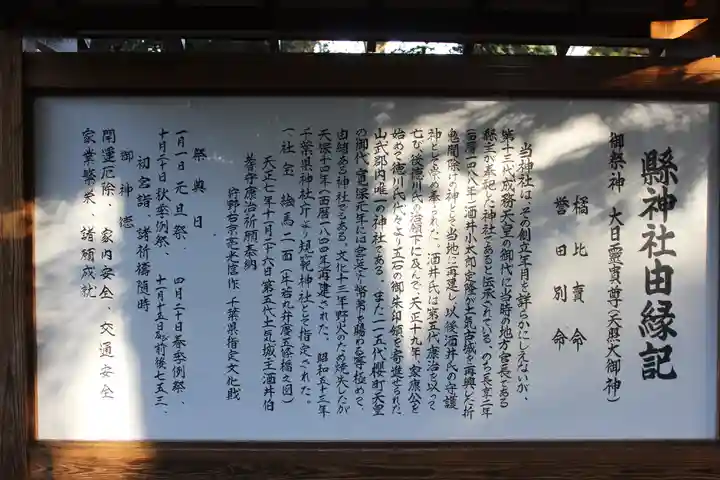 縣神社由縁記
御祭神　大日靈貴尊(天照大御神)
橘比賣命
誉田別命
当神社は、その創立年月を詳らかにしないが、
第十三代成務天皇の御代に当時の地方官長である
縣主が奉祀した神社であると伝承されている。のち長享二年
(西暦一四八八年)酒井小太郎定隆が土気古城を再興した折
鬼門除けの神として当地に再建し、以後酒井氏の守護
神として崇め奉られた。酒井氏は第五代康治を以って
亡び、後徳川氏の治領下に及んで、天正十九年、家康公を
始めて徳川氏代々より五石の御朱印領を寄進せられた
山武郡内唯一の神社である。また一一五代櫻町天皇
の御代、寛保元年には宮廷より幣帛を賜わる等極めて
由緒ある神社である。文化十三年野火のため焼失したが
天保十四年(西暦一八四三年)再建された。昭和五十三年
千葉県神社庁より規範神社として指定された。
一、社宝　絵馬二面(牛若丸弁慶五條橋之図)
天正七年十一月二十六日第五代土気城主酒井伯
耆守康治祈願奉納
狩野右京亮光信作　千葉県指定文化財
祭典日
一月一日元旦祭、　四月二十日春季例祭、
十月二十日秋季例祭、　十一月十五日及び前後七五三、
初宮詣、諸祈禱随時
御神徳
開運厄除、家内安全、交通安全
家業繁栄、諸願成就